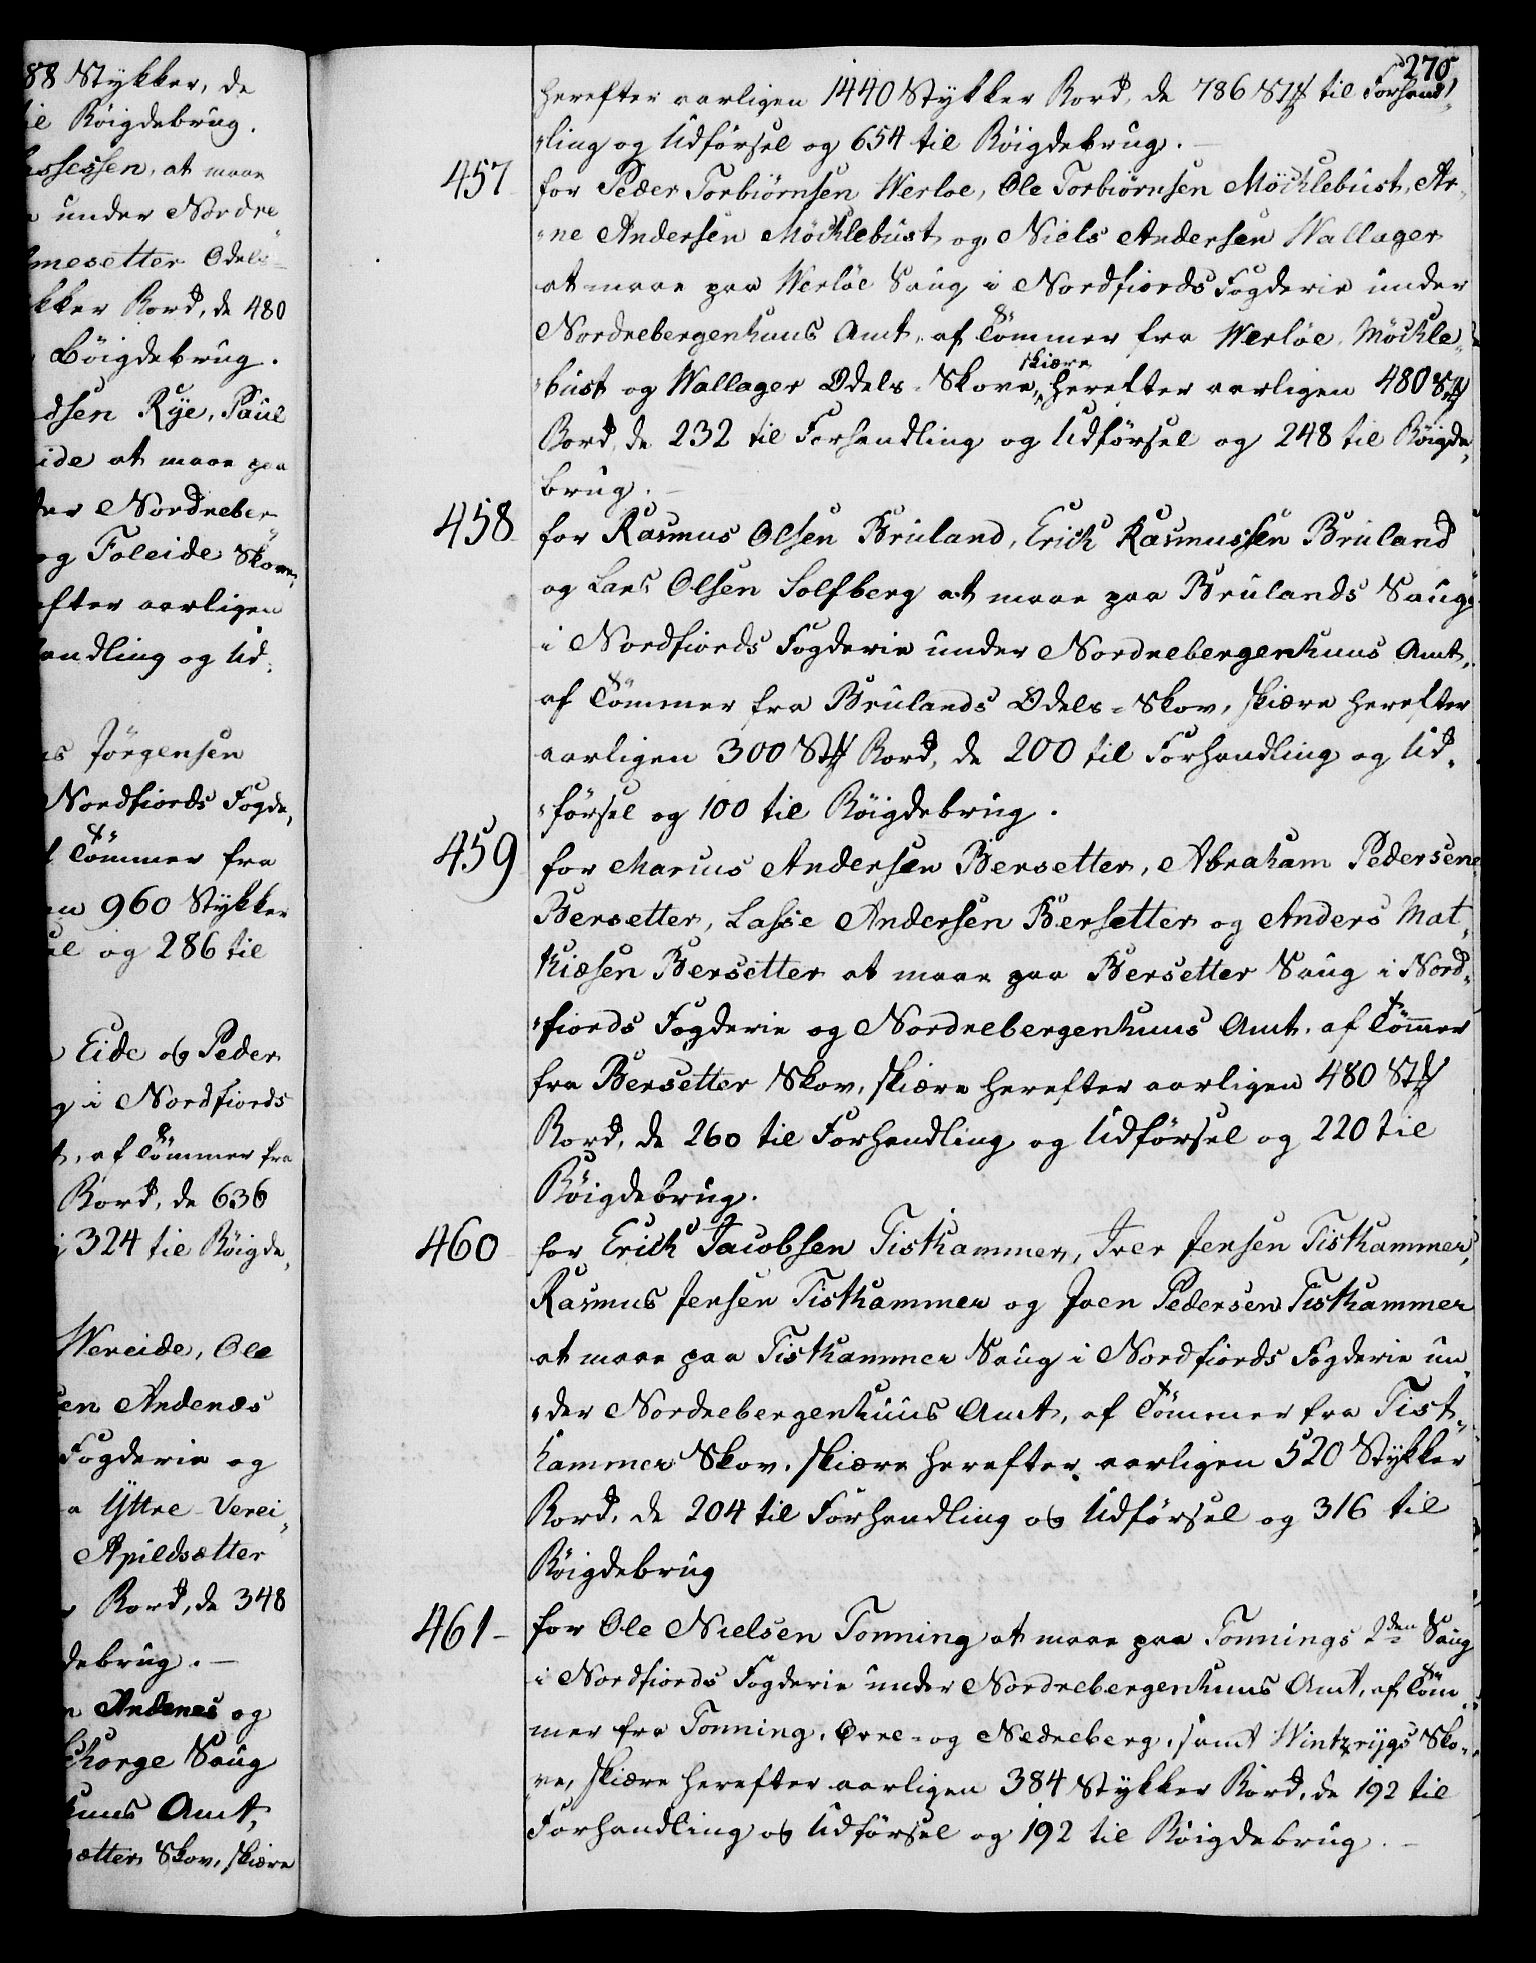 88 Stykker, de
Bøigdebrug.
at maae
under Nordre
mesetter Odels-
kker Bord, de 480
Bøigdebrug.
dsen Rye, Paul
ide at maae paa
der Nordreber-
og Foleide Skove,
efter aarligen
handling og Ud-
Jörgensen
Nordfiords Fogde,
Tömmer fra
en 960 Stykker
og 286 til
Eide og Peder
i Nordfiords
af Tömmer fra
Bord, de 636
324 til Böigde,
Wereide, Ole
sen Andenæs
Fogderie og
Yttre-Verei-
Apildsætter
Bord, de 348
debrug. -
Andenes og
Saug
huus Amt,
sætter Skov, skiære
270
herefter aarligen 1440 Stykker Bord, de 786 Stk til Forhand-
ling og Udförsel og 654 til Böigdebrug. -
457 for Peder Torbiörnsen Werloe, Ole Torbiörnsen Möcklebust, Ar-
ne Andersen Möcklebust og Niels Andersen Wallager
at maae paa Werlöe Saug i Nordfiords Fogderie under
Nordrebergenhuus Amt, af Tömmer fra Werlöe, Möckle-
skiære
bust og Wallager Odels-Skove, herefter aarligen 480 Stk
Bord, de 232 til Forhandling og Udförsel og 248 til Böigde-
brug. -
458 for Rasmus Olsen Bruland, Erich Rasmussen Bruland
og Lars Olsen Solfberg at maae paa Brulands Saug
i Nordfiords Fogderie under Nordrebergenhuus Amt,
af Tömmer fra Brulands Odels-Skov, skiære herefter
aarligen 300 Stk Bord, de 200 til Forhandling og Ud-
försel og 100 til Böigdebrug.
459 for Marius Andersen Bersetter, Abraham Pedersen
Bersetter, Lasse Andersen Bersetter og Anders Mat-
hiæsen Bersetter at maae paa Bersetter Saug i Nord-
fiords Fogderie og Nordrebergenhuus Amt, af Tömer
fra Bersetter Skov, skiære herefter aarligen 480 Stk
Bord, de 260 til Forhandling og Udförsel og 220 til
Böigdebrug.
460 for Erich Jacobsen Tisthammer, Iver Jensen Tisthammer,
Rasmus Jensen Tisthammer og Joen Pedersen Tisthammer
at maae paa Tisthammer Saug i Nordfiords Fogderie un-
der Nordrebergenhuus Amt, af Tömmer fra Tist-
hammer Skov, skiære herefter aarligen 520 Stykker
Bord, de 204 til Forhandling og Udförsel og 316 til
Böigdebrug
461- for Ole Nielsen Tonning at maae paa Tonnings 2den Saug
i Nordfiords Fogderie under Nordrebergenhuus Amt, af Töm-
mer fra Tonning, Øvre- og Nedreberg, samt Sko-
ve, skiære herefter aarligen 384 Stykker Bord, de 192 til
Forhandling og Udförsel og 192 til Böigdebrug. -